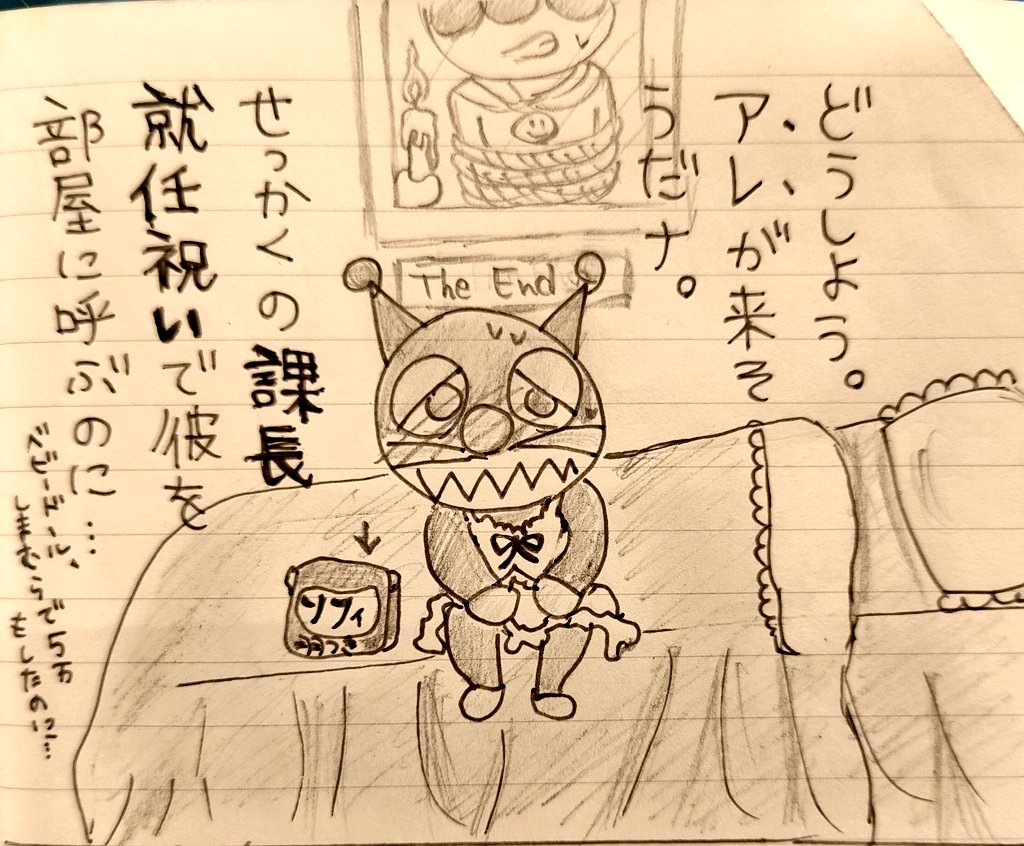 どうしよう。
アレが来そ
うだナ。
The End
せっかくの課長
就任祝いで彼を
部屋に呼ぶのに…
ベビードール、
しまむらで5万
もしたのに…
ソフィ